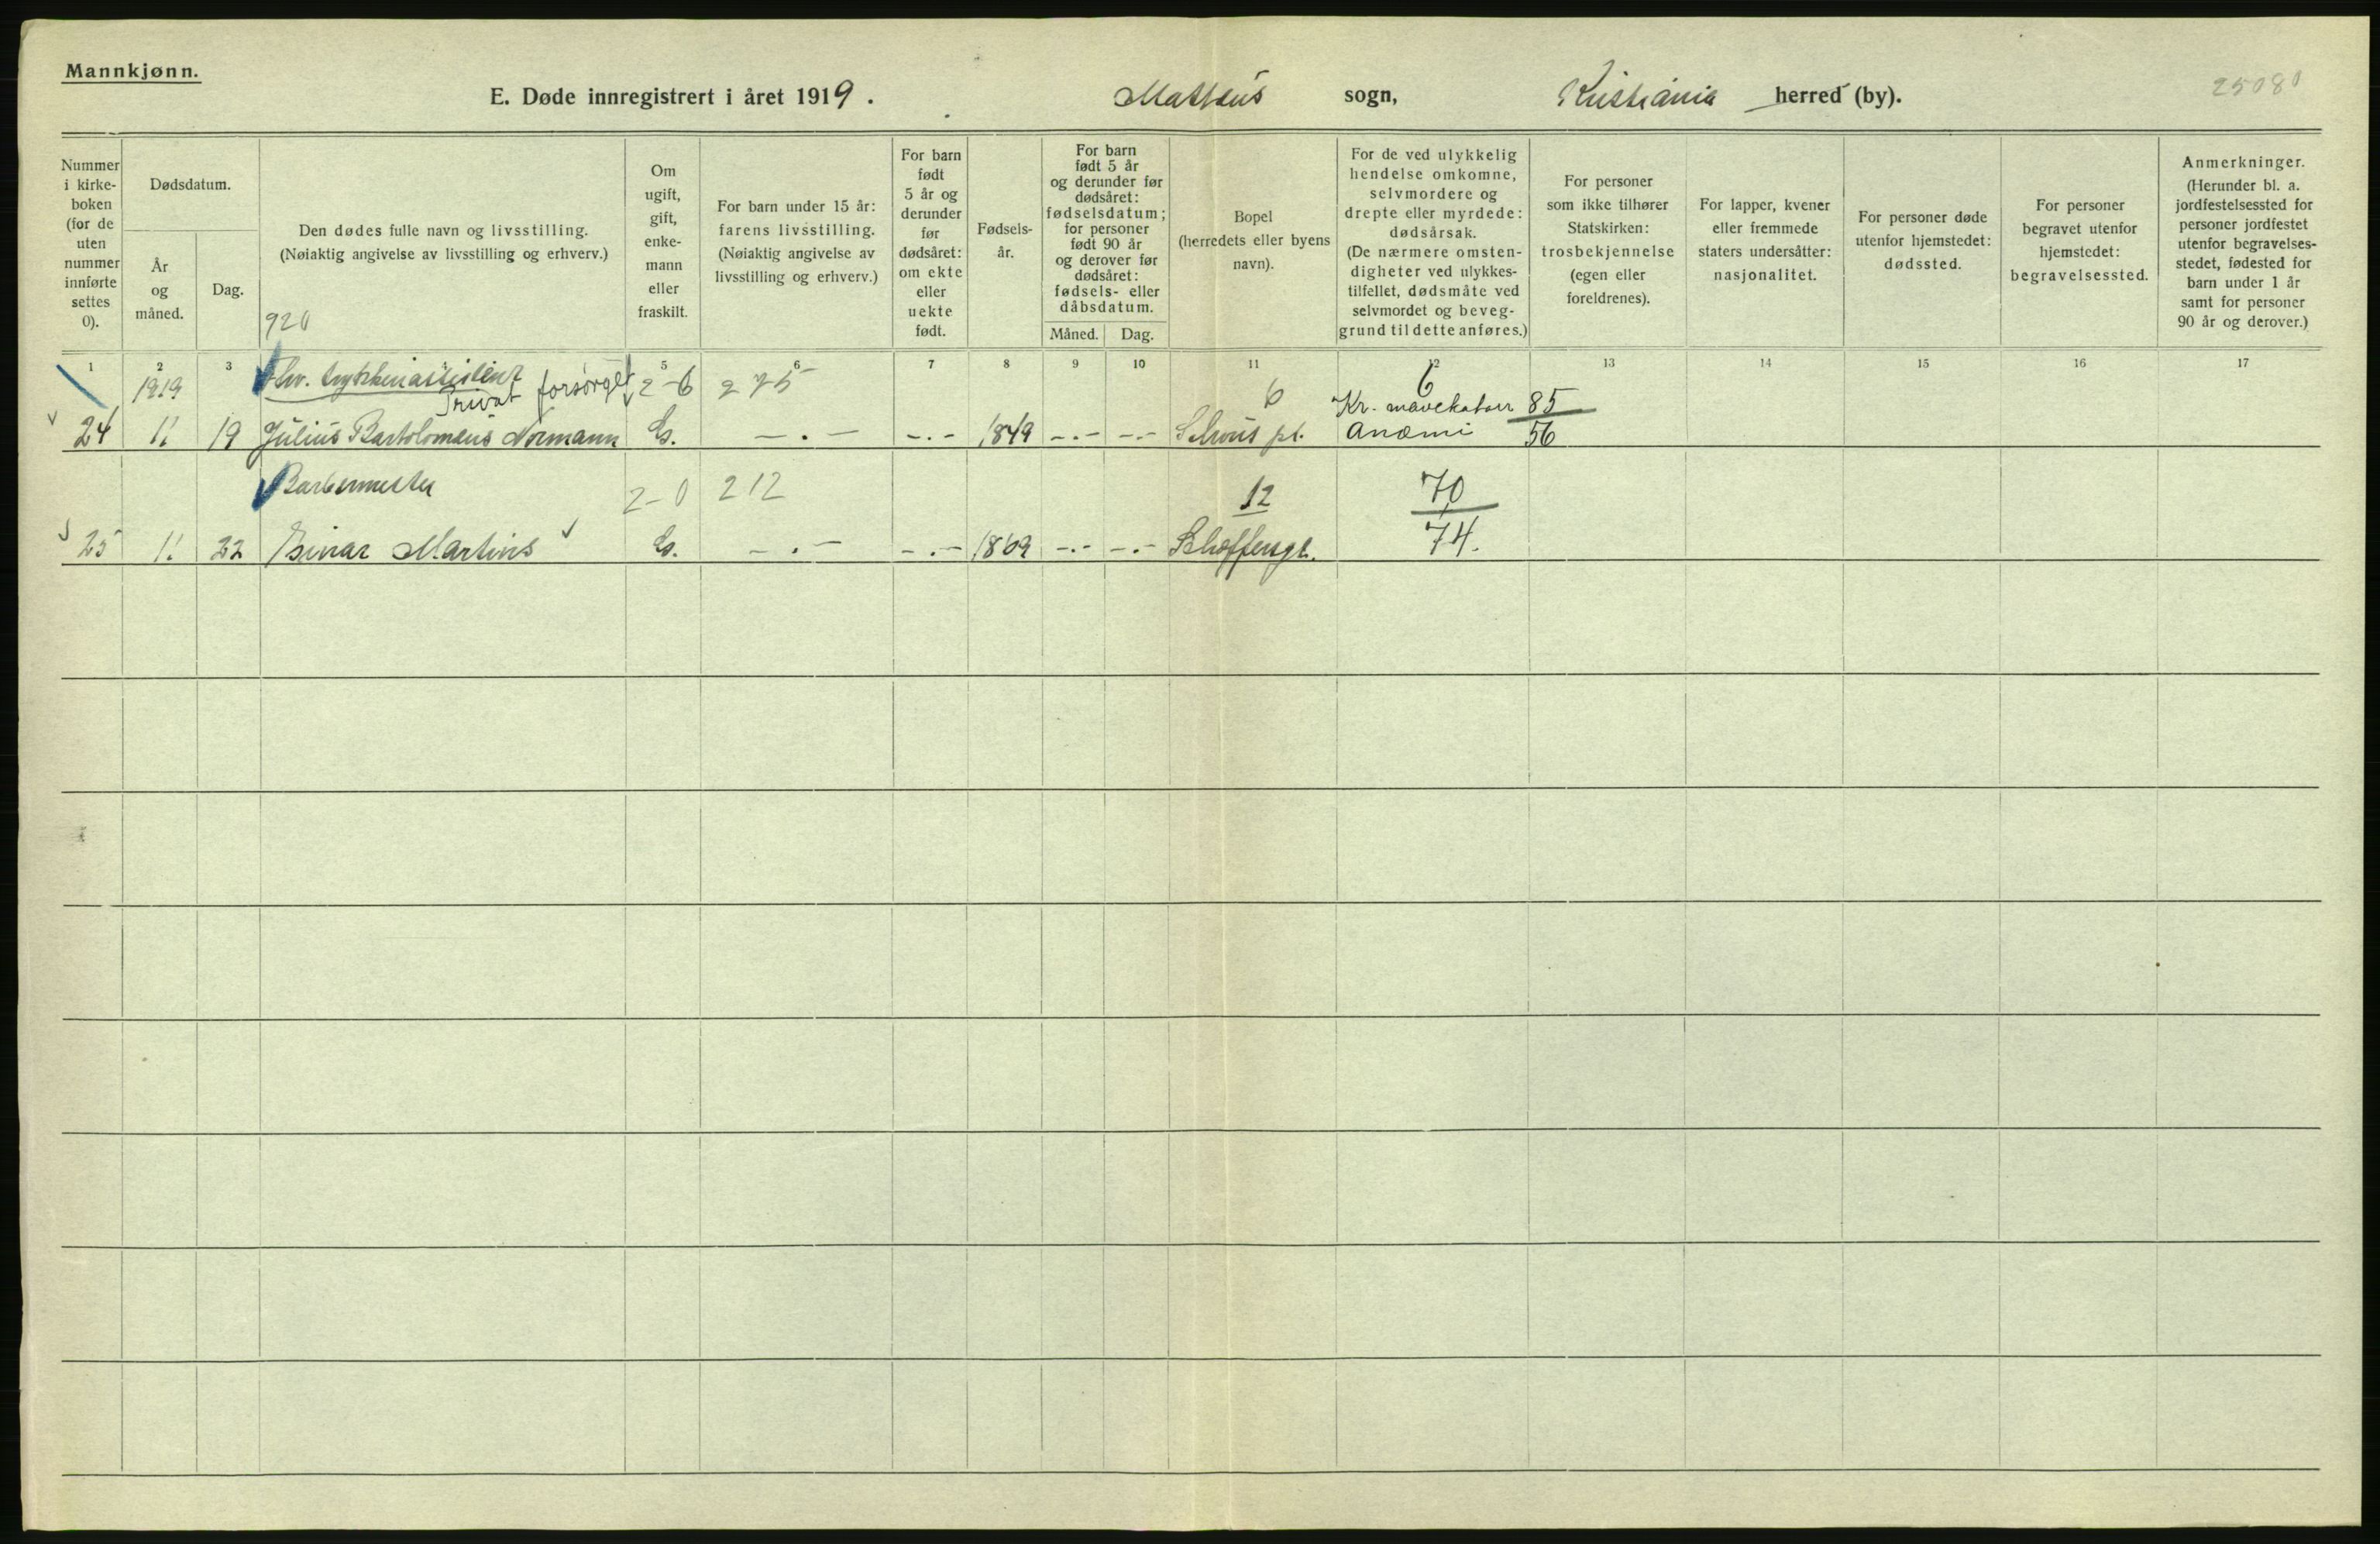 Mannkjønn.
E. Døde innregistrert i året 1919. Mattæus sogn, Kristiania herred (by).
25080
Nummer i kirke-boken (for de uten nummer innførte settes 0).
Dødsdatum.
År og måned.
Dag.
Den dødes fulle navn og livsstilling.
(Nøiaktig angivelse av livsstilling og erhverv.)
920
Om ugift, gift, enke-mann eller fraskilt.
For barn under 15 år: farens livsstilling.
(Nøiaktig angivelse av livsstilling og erhverv.)
For barn født 5 år og derunder før dødsåret: om ekte eller uekte født.
Fødsels-år.
For barn født 5 år og derunder før dødsåret: fødselsdatum; for personer født 90 år og derover før dødsåret: fødsels- eller dåbsdatum.
Måned. Dag.
Bopel (herredets eller byens navn).
For de ved ulykkelig hendelse omkomne, selvmordere og drepte eller myrdede: dødsårsak.
(De nærmere omsten-digheter ved ulykkes-tilfellet, dødsmåte ved selvmordet og beveg-grund til dette anføres.)
For personer som ikke tilhører Statskirken: trosbekjennelse (egen eller foreldrenes).
For lapper, kvener eller fremmede staters undersåtter: nasjonalitet.
For personer døde utenfor hjemstedet: dødssted.
For personer begravet utenfor hjemstedet: begravelsessted.
Anmerkninger.
(Herunder bl. a. jordfestelsessted for personer jordfestet utenfor begravelses-stedet, fødested for barn under 1 år samt for personer 90 år og derover.)
1 2 3 5 6 7 8 9 10 11 12 13 14 15 16 17
1919 Privat forsørget 2-6 275 6 6
Kr. mavekatarr 85
24 11 19 Julius Bartolomæus Normann G. -.- -.- 1849 -.- -.- Schous pl. Anæmi 56
Barbermester 2-0 212 12 70
25 11 22 Einar Martins G. -.- -.- 1869 -.- -.- Schæffersgt. 74.